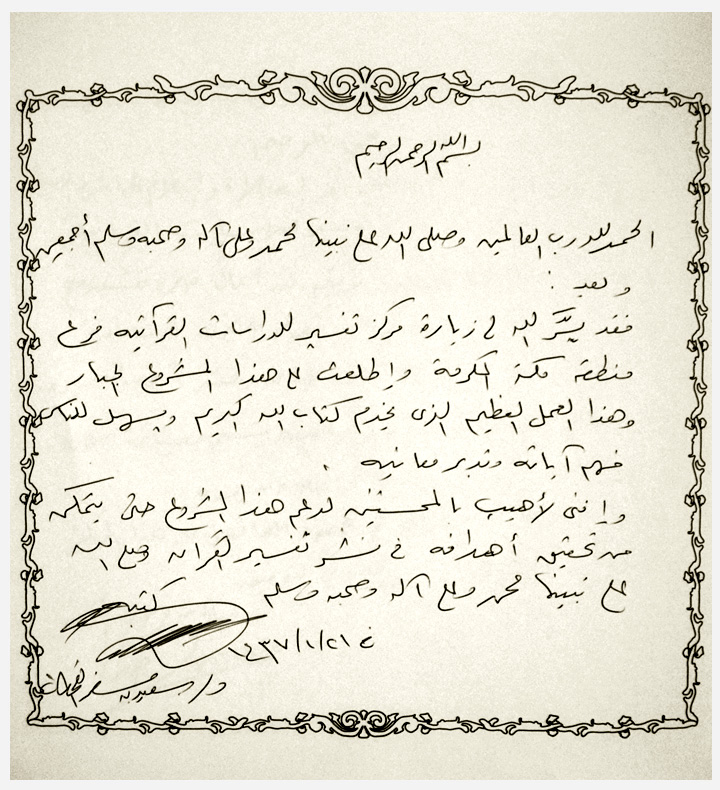 بسم الله الرحمن الرحيم
الحمد لله رب العالمين وصلى الله على نبينا محمد وعلى آله وصحبه وسلم أجمعين
وبعد :
فقد يسَّر الله لي زيارة مركز تفسير للدراسات القرآنية فرع
منطقة مكة المكرمة وإطلعت على هذا المشروع الجبار
وهذا العمل العظيم الذي يخدم كتاب الله الكريم ويسهل للناس
فهم آياته وتدبر معانيه .
وإنني لأهيب بالمحسنين لدعم هذا المشروع حتى يتمكن
من تحقيق أهدافه في نشر تفسير القرآن وصلى الله
على نبينا محمد وعلى آله وصحبه وسلم
كتبه
في ١٤٣٧/١/٢١
د/ سعيد بن مسفر القحطاني